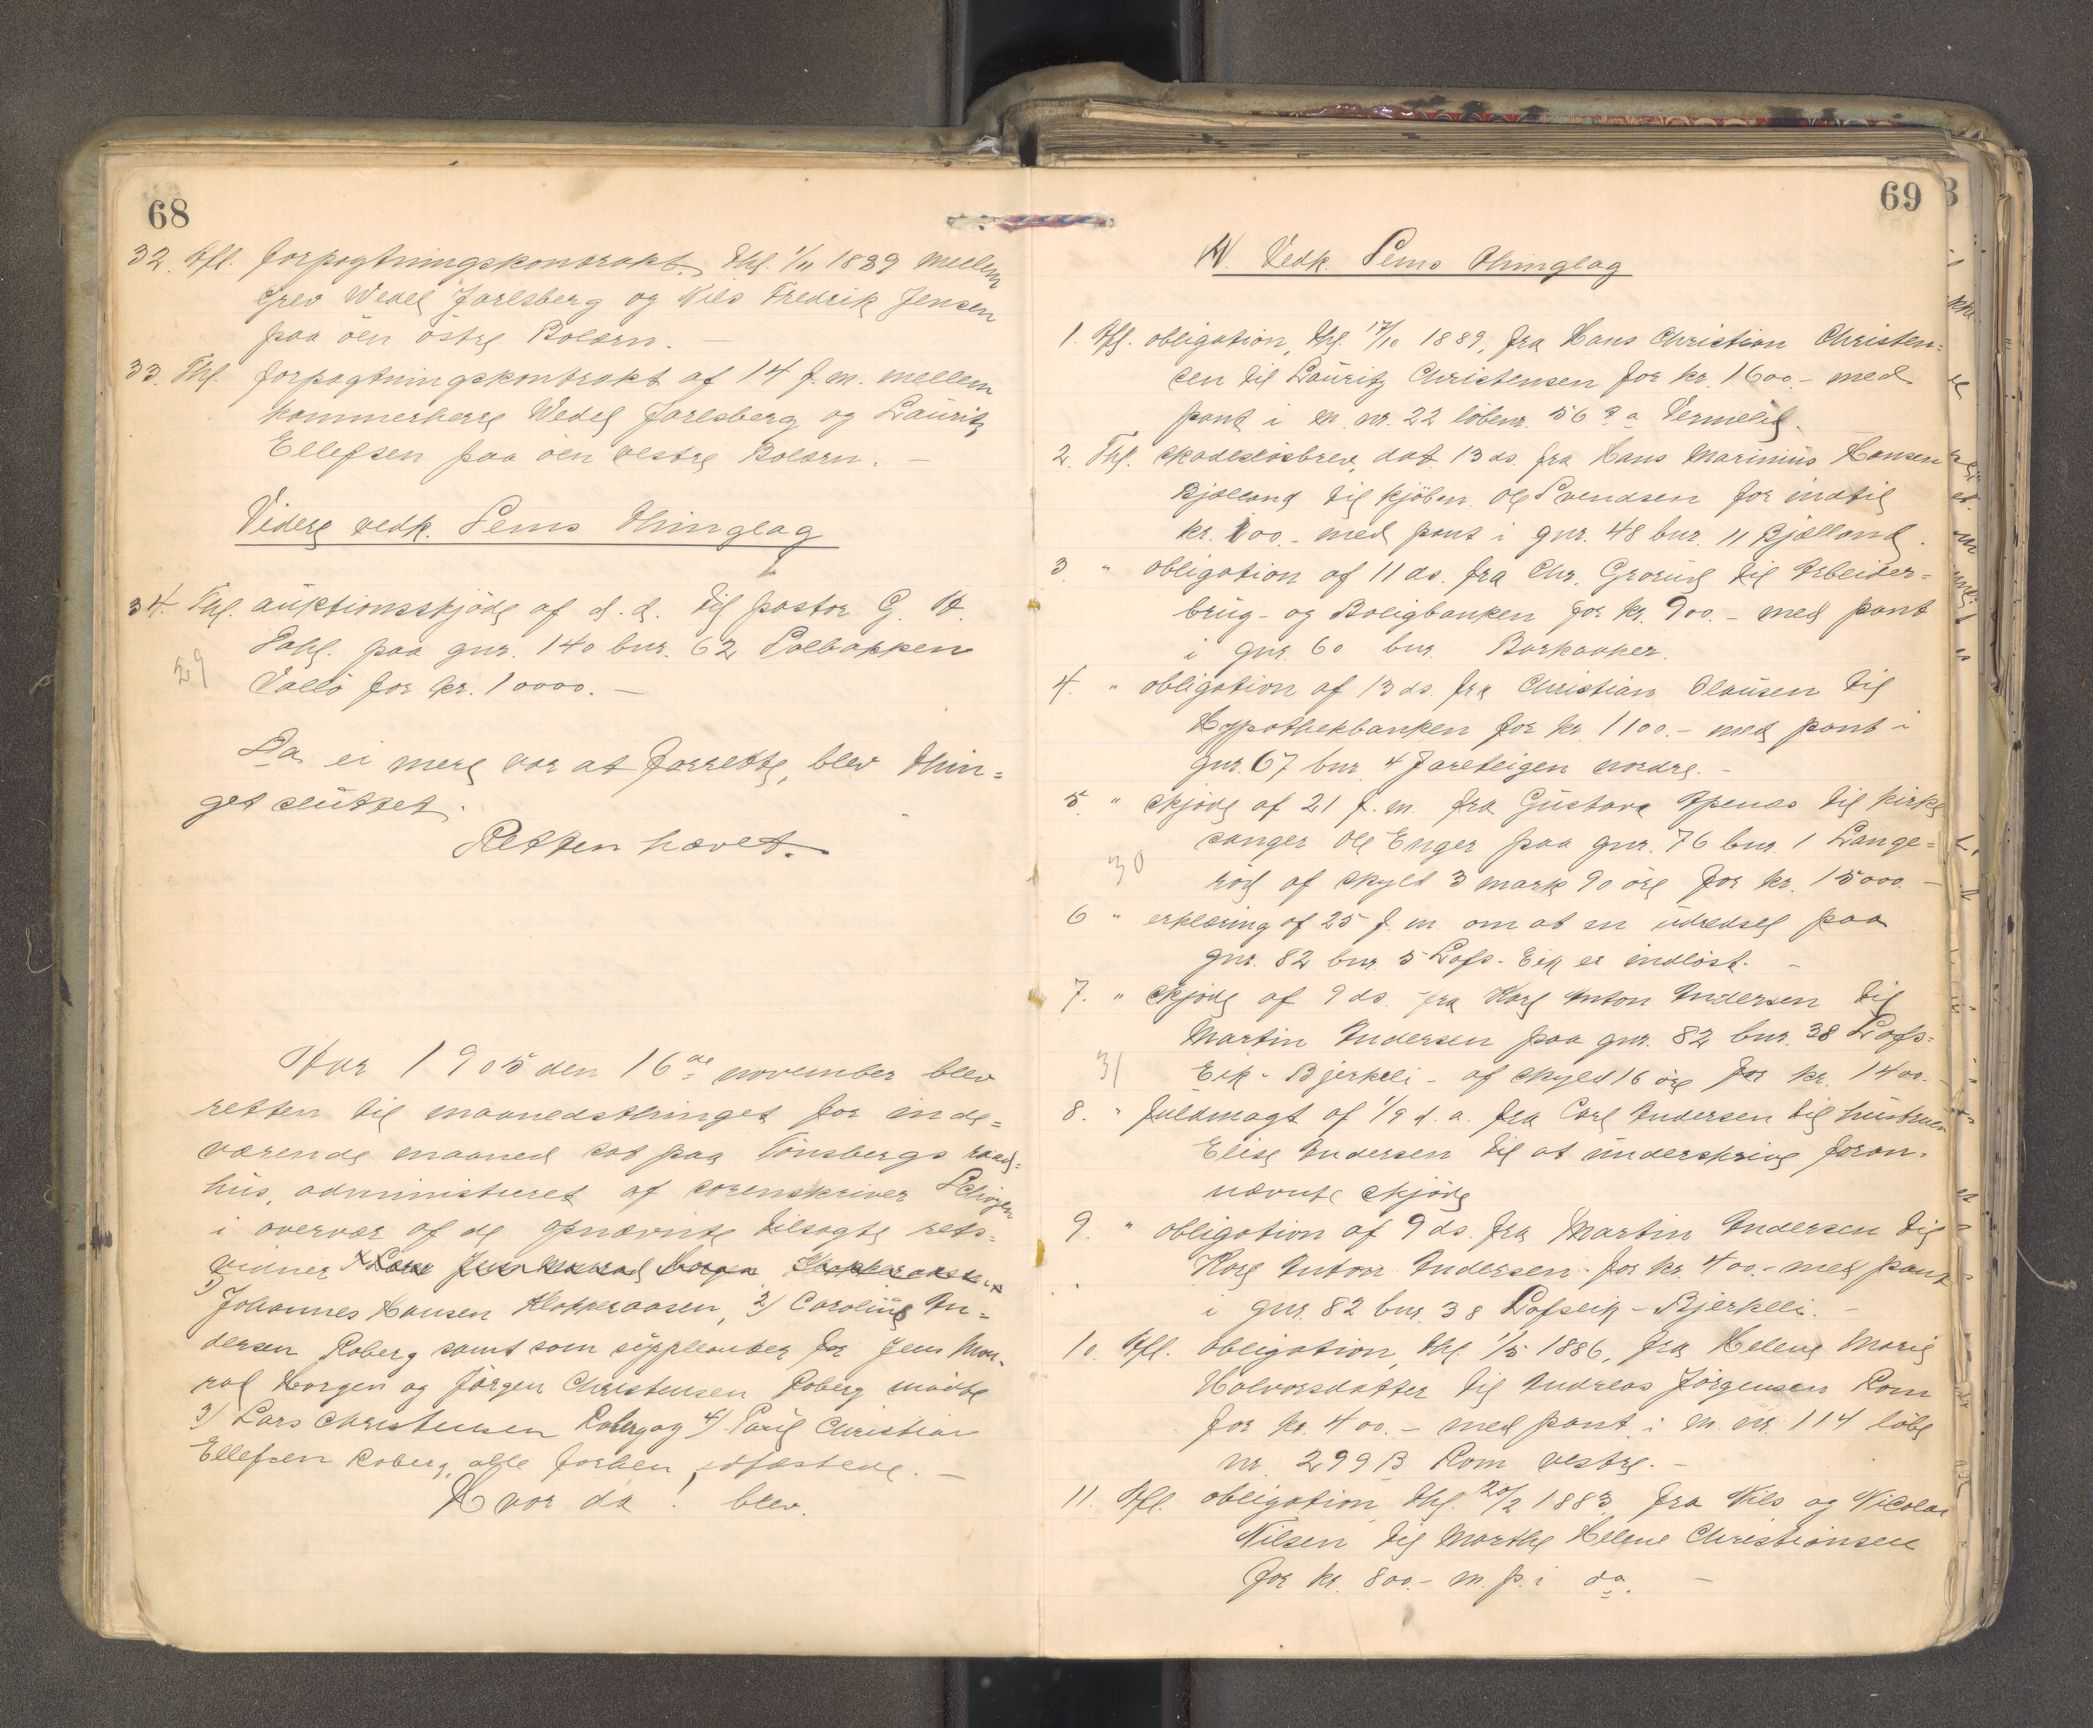 68
32. Afl. forpagtningskontrakt, thl. 1/11 1889 mellem
grev Wedel Jarlsberg og Nils Fredrik Jensen
paa öen östre Bolærn. —
33. Thl. forpagtningskontrakt af 14 f. m. mellem
kammerherre Wedel Jarlsberg og Lauritz
Ellefsen paa öen vestre Bolærn. —
Videre vedk. Sems thinglag
34. Thl. auktionsskjöde af d. d. til pastor G. A.
Dahl. paa gnr. 140 bnr. 62 Solbakken
29
Vallö for kr. 10000. —
Da ei mere var at forrette, blev thin=
get sluttet.
Retten hævet.
Aar 1905 den 16de november blev
retten til maanedsthinget for inde=
værende maaned sat paa Tönsbergs raad=
hus, administreret af sorenskriver
i overvær af de opnævnte tilsagte rets=
vidner
1) Johannes Hansen Klopperaasen, 2) Carolius An=
dersen Roberg samt som suppleanter for Jens Mon=
rad Horgen og Jörgen Christensen Roberg mödte
3) Lars Christensen Roberg og 4) Paul Christian
Ellefsen Roberg, alle forhen edfæstede. —
Hvor da! blev.
69
A. Vedk. Sems thinglag
1. Afl. obligation, thl. 17/10 1889, fra Hans Christian Christen=
sen til Lauritz Christensen for kr. 1600.- med
pant i m. nr. 22 löbenr. 56 a Vermelid.
2. Thl. skadeslösbrev, dat. 13 ds. fra Hans Marinius Hansen
Bjælland til kjöbm. Ole Svendsen for indtil
kr. 100.- med pant i gnr. 48 bnr. 11 Bjælland.
3. " obligation af 11 ds. fra Chr. Grorud til Arbeider=
brug- og Boligbanken for kr. 900.- med pant
i gnr. 60 bnr. Barkaaker.
4. " obligation af 13 ds. fra Christian Olausen til
Hypothekbanken for kr. 1100.- med pant i
gnr. 67 bnr. 4 Jareteigen nordre. -
5. " skjöde af 21 f. m. fra Gustava Apenæs til kirke
sanger Ole Enger paa gnr. 76 bnr. 1 Lange=
30
röd af skyld 3 mark 90 öre for kr. 15000. -
6 " erklæring af 25 f. m. om at en udredsel paa
gnr. 82 bnr. 5 Lofs-Eik er indlöst. -
7. " skjöde af 9 ds. fra Karl Anton Andersen til
Martin Andersen paa gnr. 82 bnr. 38 Lofs=
31
Eik - Bjerkeli - af skyld 16 öre for kr. 1400. -
8. " fuldmagt af 1/9 d. a. fra Carl Andersen til hustruen
Elise Andersen til at underskrive foran=
nævnte skjöde
9. " obligation af 9 ds. fra Martin Andersen til
Karl Anton Andersen for kr. 400.- med pant
i gnr. 82 bnr. 38 Lofseik - Bjerkeli. -
10. Afl. obligation, thl. 1/5 1886, fra Helene Marie
Halvorsdatter til Andreas Jörgensen Rom
for kr. 400.- med pant i m. nr. 114 löbe
nr. 299 B Rom vestre. -
11. Afl. obligation, thl. 20/2 1883, fra Nils og Nicolai
Nilsen til Marthe Helene Christiansen
for kr. 800.- m. p. i do. -